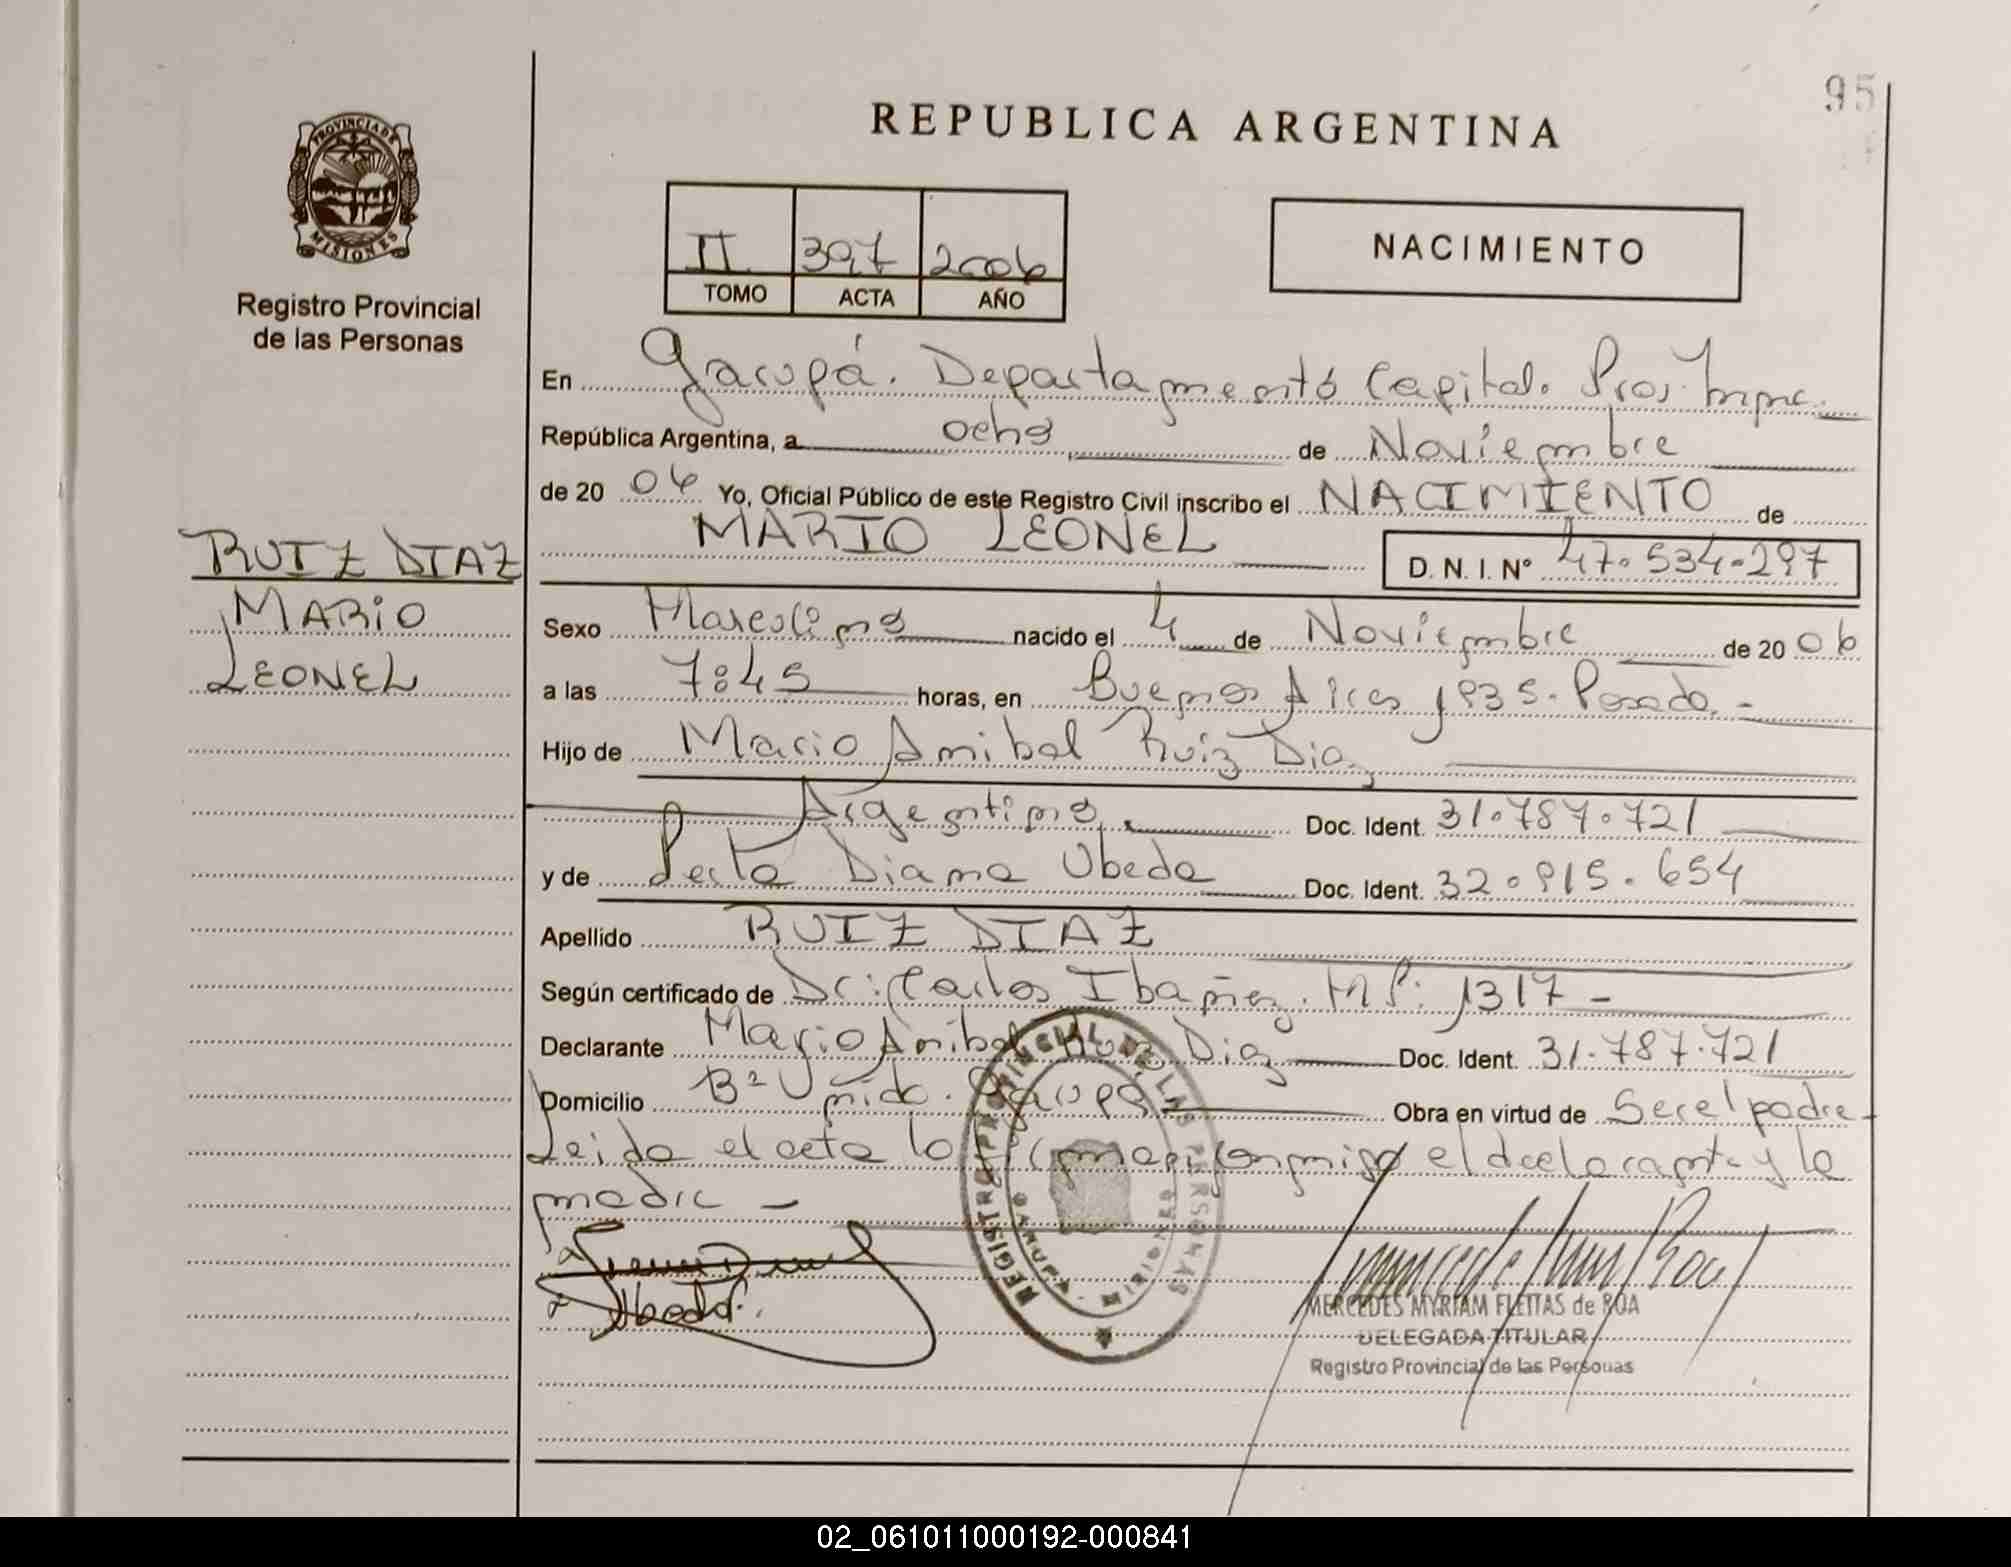 95
REPUBLICA ARGENTINA
PROVINCIA DE
MISIONES
Registro Provincial
de las Personas
II 397 2006
TOMO ACTA AÑO
NACIMIENTO
En Garupá. Departamento Capital. Prov.
República Argentina, a ocho de Noviembre
de 20 06 Yo, Oficial Público de este Registro Civil inscribo el NACIMIENTO de
MARIO LEONEL D.N.I. Nº 47.534.297
RUIZ DIAZ
MARIO
LEONEL
Sexo Masculino nacido el 4 de Noviembre de 20 06
a las 7:45 horas, en Buenos Aires 1935. Posadas.-
Hijo de Mario Anibal Ruiz Diaz
Argentino, Doc. Ident. 31.787.721
y de Diana Ubeda Doc. Ident. 32.915.654
Apellido RUIZ DIAZ
Según certificado de Dr: Carlos Ibañez. MP: 1317 -
Declarante Mario Anibal Ruiz Diaz Doc. Ident. 31.787.721
Domicilio Bº Unido. Garupá Obra en virtud de Ser el padre-
Leida el acta lo firman conmigo el declarante y la
madre -
REGISTRO PROVINCIAL DE LAS PERSONAS
GARUPA
MISIONES
Ubeda
MERCEDES MYRIAM FLEITAS de ROA
DELEGADA TITULAR
Registro Provincial de las Personas
02_061011000192-000841